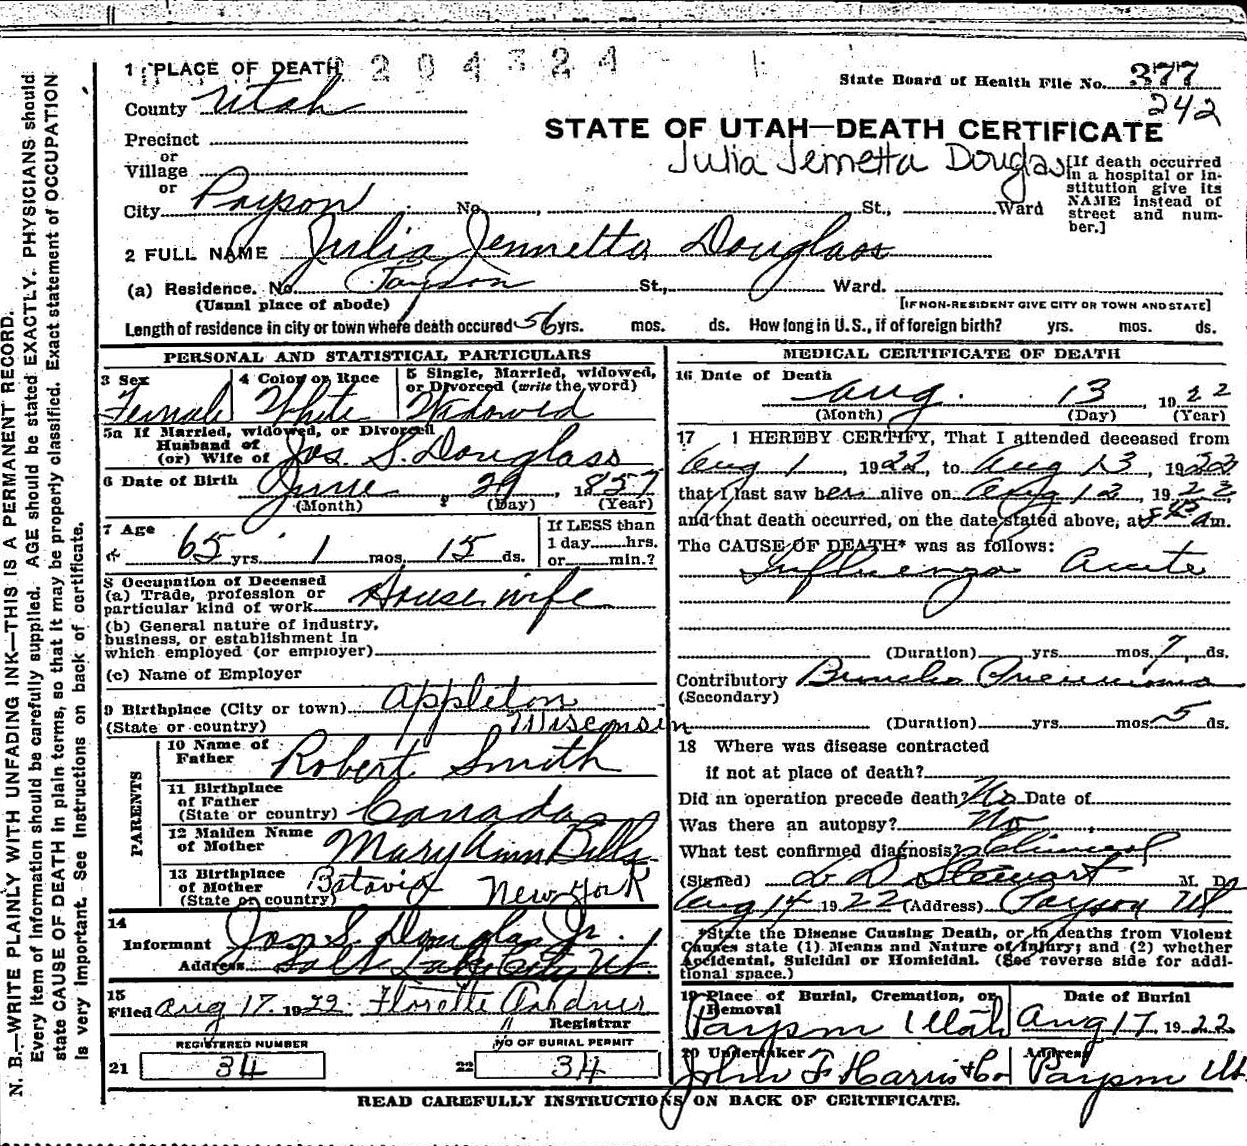 1 PLACE OF DEATH
204324
State Board of Health File No. 377
242
County Utah
Precinct
or
Village
or
City Payson No. , St., Ward
STATE OF UTAH—DEATH CERTIFICATE
Julia Jennetta Douglas
[If death occurred
in a hospital or in-
stitution give its
NAME instead of
street and num-
ber.]
2 FULL NAME Julia Jennetta Douglass
(a) Residence. No. Payson St., Ward.
(Usual place of abode)
[IF NON-RESIDENT GIVE CITY OR TOWN AND STATE]
Length of residence in city or town where death occured 56 yrs. mos. ds. How long in U.S., if of foreign birth? yrs. mos. ds.
PERSONAL AND STATISTICAL PARTICULARS
3 Sex
Female
4 Color or Race
White
5 Single, Married, widowed,
or Divorced (write the word)
Widowed
5a If Married, widowed, or Divorced
Husband of
(or) Wife of Jos. S. Douglass
6 Date of Birth June 29 1857
(Month) (Day) (Year)
7 Age
65 yrs. 1 mos. 15 ds.
If LESS than
1 day hrs.
or min.?
8 Occupation of Deceased
(a) Trade, profession or
particular kind of work Housewife
(b) General nature of industry,
business, or establishment in
which employed (or employer)
(c) Name of Employer
9 Birthplace (City or town) Appleton
(State or country) Wisconsin
PARENTS
10 Name of
Father Robert Smith
11 Birthplace
of Father
(State or country) Canada
12 Maiden Name
of Mother Mary Ann Bills
13 Birthplace
of Mother
(State or country) Batavia New York
14
Informant Jos S. Douglas Jr.
Address Salt Lake City Ut.
15
Filed Aug 17. 1922 Florette
Registrar
REGISTERED NUMBER
21 34
NO OF BURIAL PERMIT
22 34
MEDICAL CERTIFICATE OF DEATH
16 Date of Death
Aug. 13, 1922
(Month) (Day) (Year)
17 I HEREBY CERTIFY, That I attended deceased from
Aug 1, 1922, to Aug 13, 1922
that I last saw her alive on Aug 12, 1922
and that death occurred, on the date stated above, at 8 45 am.
The CAUSE OF DEATH* was as follows:
Influenza Acute
(Duration) yrs. mos. 7, ds.
Contributory Broncho Pneumonia
(Secondary)
(Duration) yrs. mos. 5 ds.
18 Where was disease contracted
if not at place of death?
Did an operation precede death? No Date of
Was there an autopsy? No
What test confirmed diagnosis? Clinical
(Signed) L D Stewart M. D.
Aug 14 1922 (Address) Payson Ut
*State the Disease Causing Death, or in deaths from Violent
Causes state (1) Means and Nature of Injury; and (2) whether
Accidental, Suicidal or Homicidal. (See reverse side for addi-
tional space.)
19 Place of Burial, Cremation, or
Removal
Payson Utah
Date of Burial
Aug 17 1922
20 Undertaker
John F Harris & Co
Address
Payson Ut.
READ CAREFULLY INSTRUCTIONS ON BACK OF CERTIFICATE.
N. B.—WRITE PLAINLY WITH UNFADING INK—THIS IS A PERMANENT RECORD.
Every item of information should be carefully supplied. AGE should be stated EXACTLY. PHYSICIANS should
state CAUSE OF DEATH in plain terms, so that it may be properly classified. Exact statement of OCCUPATION
is very important. See Instructions on back of certificate.